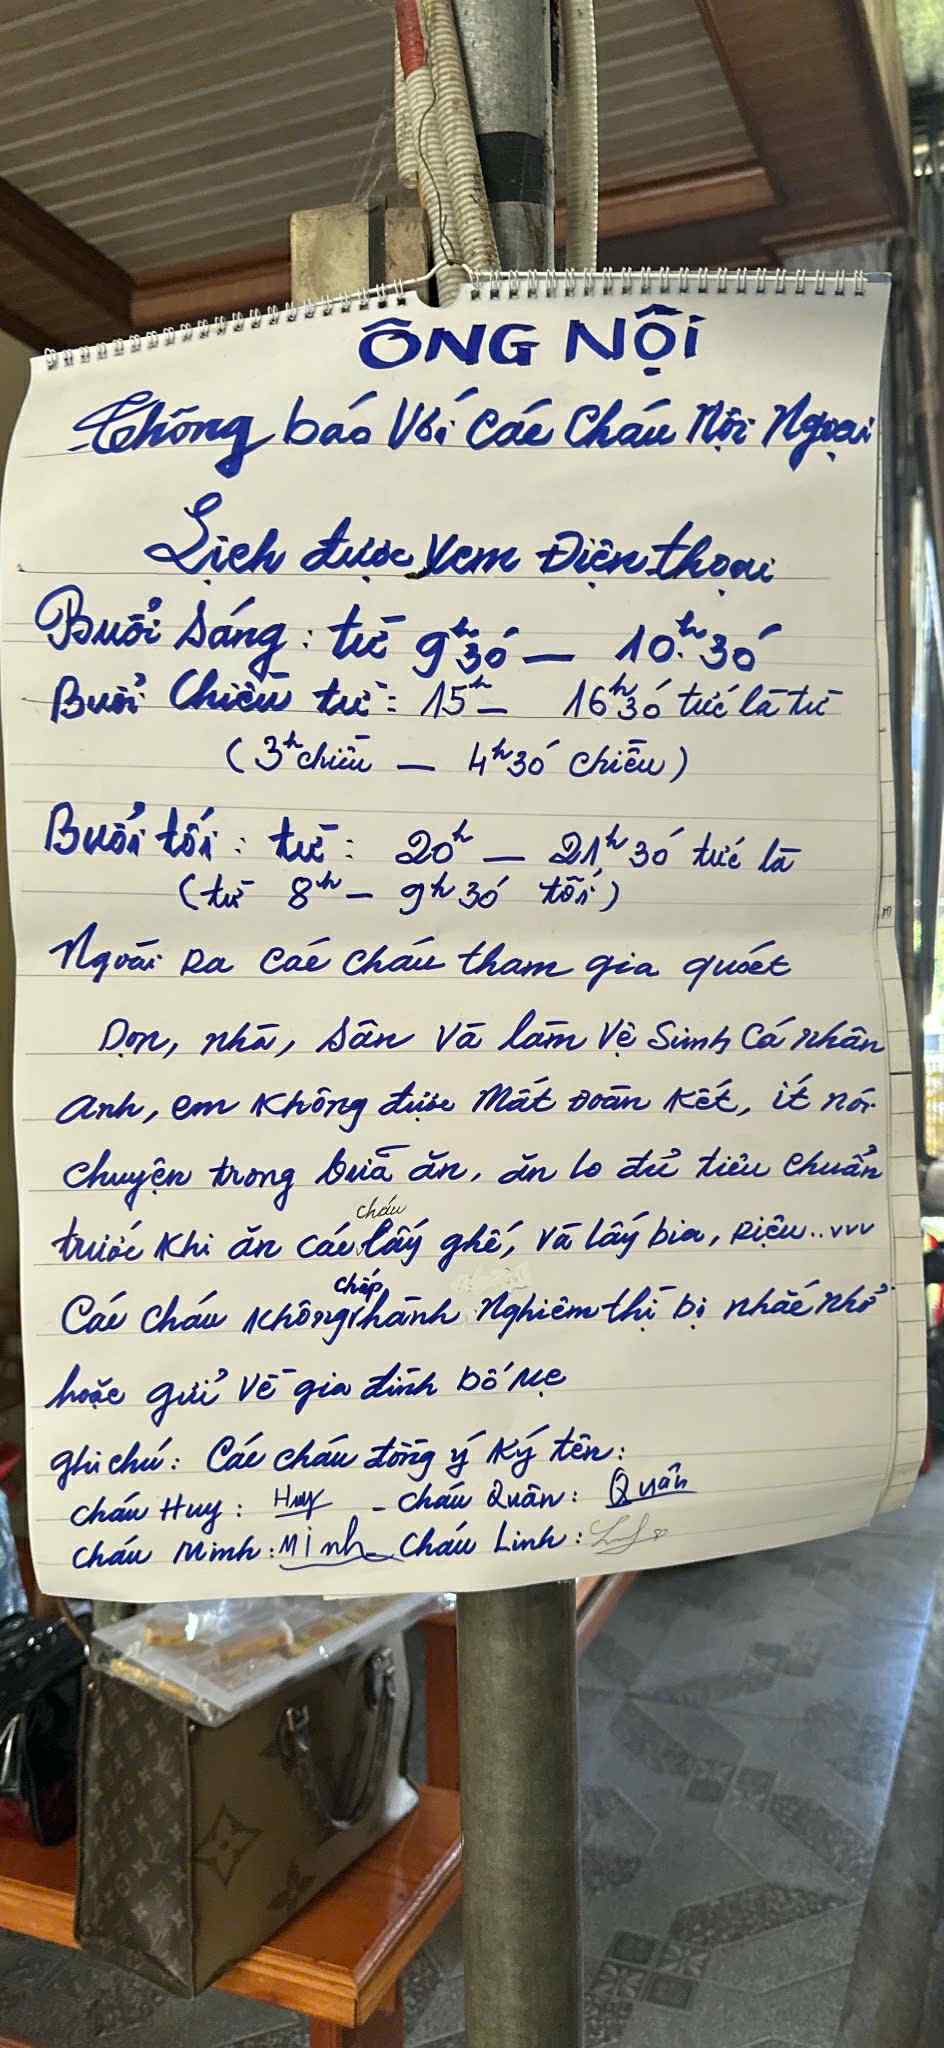 ÔNG NỘI
Thông báo Với Các Cháu Nội Ngoại
Lịch được xem Điện thoại
Buổi Sáng: từ 9h30' — 10h30'
Buổi Chiều từ: 15h — 16h30' tức là từ
(3h chiều — 4h30' chiều)
Buổi tối: từ: 20h — 21h30' tức là
(từ 8h — 9h30' tối)
Ngoài ra các cháu tham gia quét
Dọn, nhà, sân và làm vệ Sinh Cá nhân
Anh, em không được Mất đoàn kết, ít nói
chuyện trong bữa ăn, ăn lo đủ tiêu chuẩn
trước khi ăn các cháu lấy ghế, và lấy bia, rượu..vvv
Các cháu không chấp hành Nghiêm thì bị nhắc nhở
hoặc gửi về gia đình bố mẹ
ghi chú: Các cháu đồng ý ký tên:
cháu Huy: Huy - cháu Quân: Quân
cháu Minh: Minh - cháu Linh: